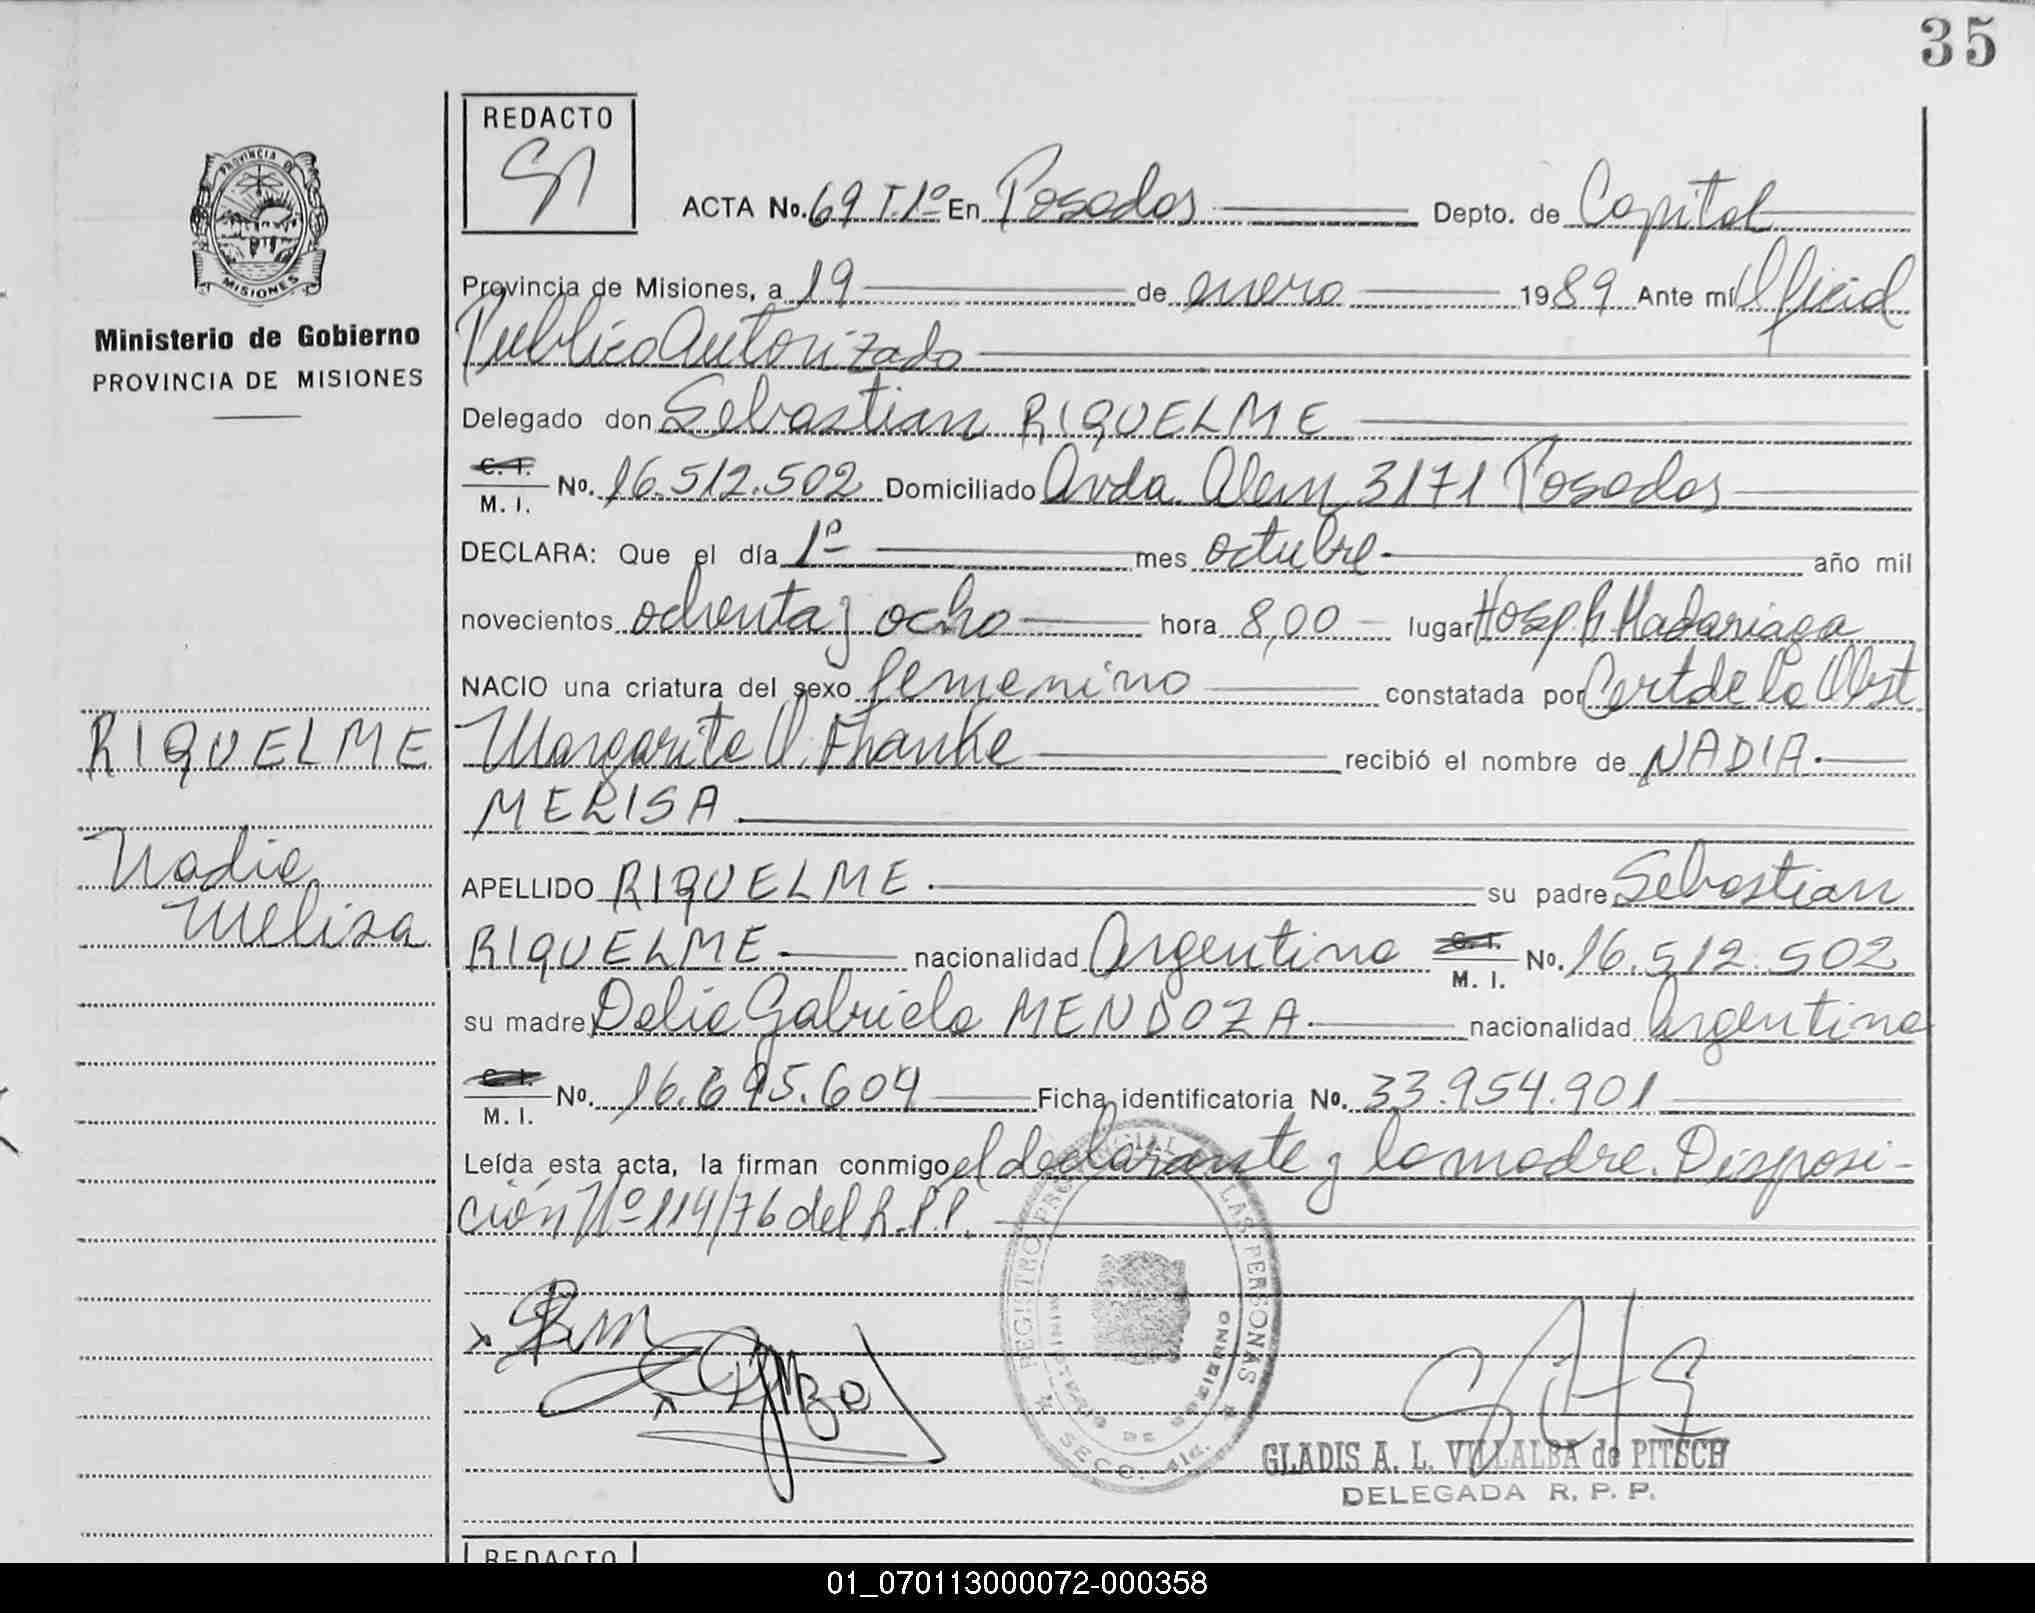 35
REDACTO
PROVINCIA DE
MISIONES
Ministerio de Gobierno
PROVINCIA DE MISIONES
ACTA No. 69 T.1º En Posadas Depto. de Capital
Provincia de Misiones, a 19 de enero 1989 Ante mí Oficial
Publico Autorizado
Delegado don Sebastian RIQUELME
C. I. / M. I. No. 16.512.502 Domiciliado Avda. Alem 3171 Posadas
DECLARA: Que el día 1º mes octubre año mil
novecientos ochenta y ocho hora 8,00 lugar Hosp. R. Madariaga
NACIO una criatura del sexo femenino constatada por Cert de la Obst
RIQUELME
Margarita O. Franke recibió el nombre de NADIA
MELISA
Nadia
Melisa
APELLIDO RIQUELME su padre Sebastian
RIQUELME nacionalidad Argentina C. I. / M. I. No. 16.512.502
su madre Delia Gabriela MENDOZA nacionalidad Argentina
C. I. / M. I. No. 16.695.609 Ficha identificatoria No. 33.954.901
Leída esta acta, la firman conmigo el declarante y la madre. Disposi-
ción Nº 114/76 del R.P.P.
REGISTRO PROVINCIAL DE LAS PERSONAS
MINISTERIO DE GOBIERNO
GLADIS A. L. VILLALBA de PITSCH
DELEGADA R. P. P.
REDACTO
01_070113000072-000358